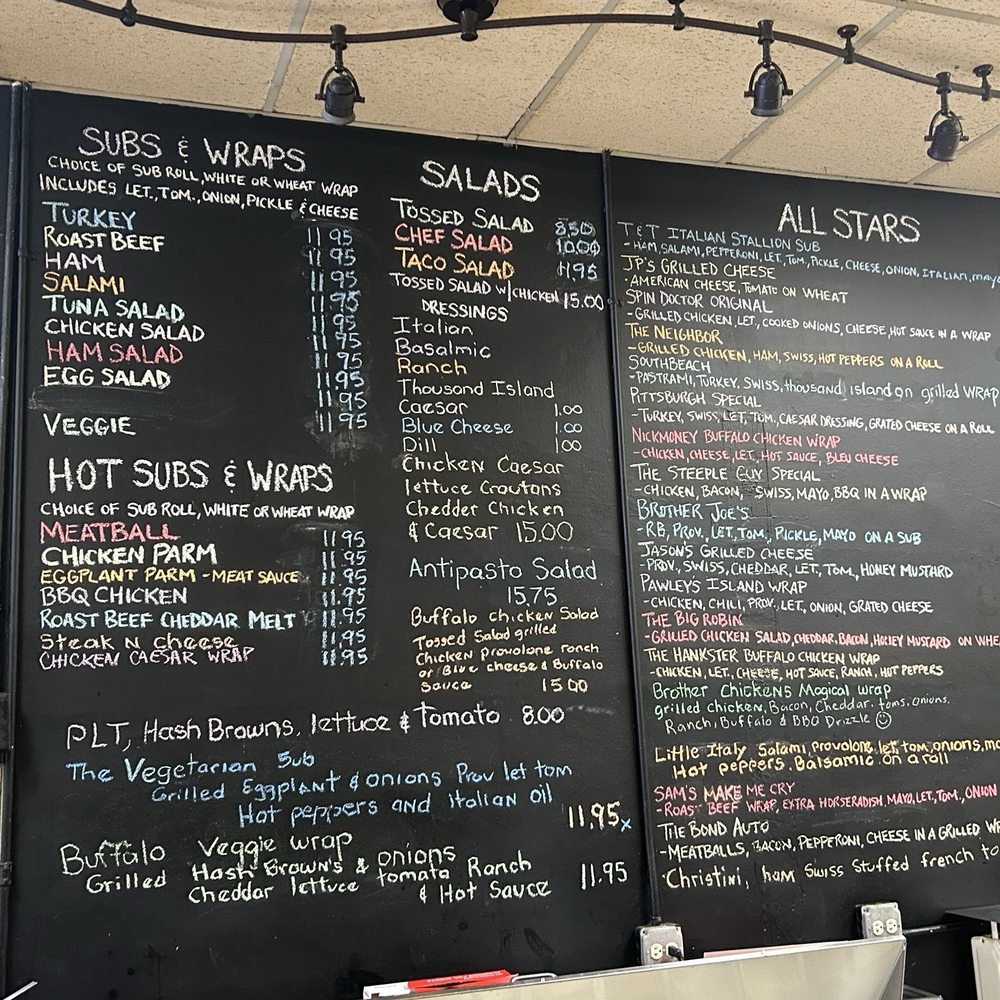 SUBS & WRAPS
CHOICE OF SUB ROLL, WHITE OR WHEAT WRAP
INCLUDES LET., TOM., ONION, PICKLE & CHEESE
TURKEY 11 95
ROAST BEEF 11 95
HAM 11 95
SALAMI 11 95
TUNA SALAD 11 95
CHICKEN SALAD 11 95
HAM SALAD 11 95
EGG SALAD 11 95
11 95
VEGGIE 11 95
HOT SUBS & WRAPS
CHOICE OF SUB ROLL, WHITE OR WHEAT WRAP
MEATBALL 11 95
CHICKEN PARM 11 95
EGGPLANT PARM - MEAT SAUCE 11.95
BBQ CHICKEN 11.95
ROAST BEEF CHEDDAR MELT 11.95
Steak N cheese 11.95
CHICKEN CAESAR WRAP 11.95
SALADS
TOSSED SALAD 8.50
CHEF SALAD 10.00
TACO SALAD 11 95
TOSSED SALAD W/ CHICKEN 15.00
DRESSINGS
Italian
Basalmic
Ranch
Thousand Island
Caesar 1.00
Blue Cheese 1.00
Dill 1 00
Chicken Caesar
lettuce Croutons
Chedder Chicken
& Caesar 15.00
Antipasto Salad
15.75
Buffalo chicken Salad
Tossed Salad grilled
Chicken provolone ranch
or Blue cheese & Buffalo
Sauce 15 00
PLT, Hash Browns, lettuce & Tomato 8.00
The Vegetarian Sub
Grilled Eggplant & onions Prov let tom
Hot peppers and italian oil
11.95x
Buffalo Veggie wrap
Grilled Hash Brown's & onions
Cheddar lettuce tomato Ranch
& Hot Sauce 11.95
ALL STARS
T&T ITALIAN STALLION SUB
-HAM, SALAMI, PEPPERONI, LET, TOM, PICKLE, CHEESE, ONION, ITALIAN, mayo
JP'S GRILLED CHEESE
-AMERICAN CHEESE, TOMATO ON WHEAT
SPIN DOCTOR ORIGINAL
-GRILLED CHICKEN, LET., COOKED ONIONS, CHEESE, HOT SAUCE IN A WRAP
THE NEIGHBOR
-GRILLED CHICKEN, HAM, SWISS, HOT PEPPERS ON A ROLL
SOUTHBEACH
-PASTRAMI, TURKEY, SWISS, thousand island on grilled WRAP
PITTSBURGH SPECIAL
-TURKEY, SWISS, LET, TOM, CAESAR DRESSING, GRATED CHEESE ON A ROLL
NICKMONEY BUFFALO CHICKEN WRAP
-CHICKEN, CHEESE, LET, HOT SAUCE, BLEU CHEESE
THE STEEPLE GUY SPECIAL
-CHICKEN, BACON, SWISS, MAYO, BBQ IN A WRAP
BROTHER JOE'S
-RB, PROV., LET, TOM., PICKLE, MAYO ON A SUB
JASON'S GRILLED CHEESE
-PROV, SWISS, CHEDDAR, LET, TOM., HONEY MUSTARD
PAWLEY'S ISLAND WRAP
-CHICKEN, CHILI, PROV, LET, ONION, GRATED CHEESE
THE BIG ROBIN
-GRILLED CHICKEN SALAD, CHEDDAR, BACON, HONEY MUSTARD ON WHE
THE HANKSTER BUFFALO CHICKEN WRAP
-CHICKEN, LET., CHEESE, HOT SAUCE, RANCH, HOT PEPPERS
Brother Chickens Magical wrap
grilled chicken, Bacon, Cheddar, toms, onions,
Ranch, Buffalo & BBQ Drizzle ☺
Little Italy Salami, Provolone, let, tom, onions, mo
Hot peppers, Balsamic on a roll
SAM'S MAKE ME CRY
-ROAST BEEF WRAP, EXTRA HORSERADISH, MAYO, LET., TOM., ONION
THE BOND AUTO
-MEATBALLS, BACON, PEPPERONI, CHEESE IN A GRILLED WR
Christini, ham Swiss Stuffed french to